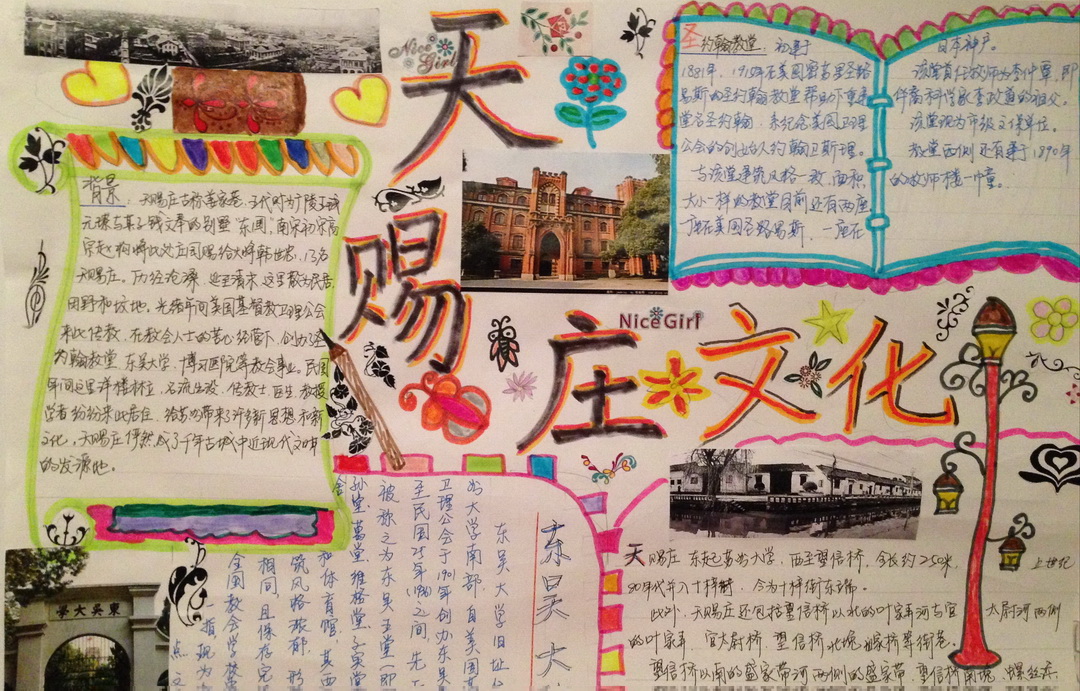 天赐庄文化
Nice Girl
Nice Girl
圣约翰教堂
始建于
1881年，1915年在美国密苏里圣路
易斯的圣约翰教堂帮助下重建
堂名圣约翰，系纪念美国卫理
公会的创始人约翰卫斯理。
与该堂建筑风格一致，面积
大小一样的教堂目前还有两座
一座在美国圣路易斯，一座在
日本神户。
该堂首任牧师为李仲覃，即
李政道的祖父。
该堂现为市级文保单位。
教堂西侧还有建于1890年
的牧师楼一幢。
背景：
天赐庄古称
五代时为广陵王钱
元璙与其子钱文奉的别墅东圃，南宋初宋高
宗赵构将此处庄园赐给大将韩世忠，
天赐庄。历经沧桑，延至清末，这里散为民居，
田野和坟地。光绪年间美国基督教卫理公会
来此传教，在教会人士的苦心经营下，创办圣
约翰教堂，东吴大学，博习医院等教会事业。民国
年间这里洋楼林立，名流出没，传教士，医生，教授
学者纷纷来此居住，给苏州带来了许多新思想和新
文化，天赐庄俨然成了千年古城中近现代文明
的发源地。
東吴大學
东吴大
东吴大学旧址位
州大学南部，自美国基
卫理公会于1901年创办东吴
至民国
年
之间，先
被称之为东吴五堂（即
孙堂、葛堂、维格堂、子实堂
和体育馆，其西
筑风格
相同，且保存完
全国教会学校
一植，现为
点文
天赐庄，东起苏州大学，西至望信桥，全长约250米，
上世纪
90年代并入十梓街，今为十梓街东端。
此外，天赐庄还包括望信桥以北的叶家弄河与官太尉河两侧
的叶家弄，官太尉桥，望信桥北堍
望信桥以南的盛家带河两侧的盛家带，望信桥南堍，螺丝浜